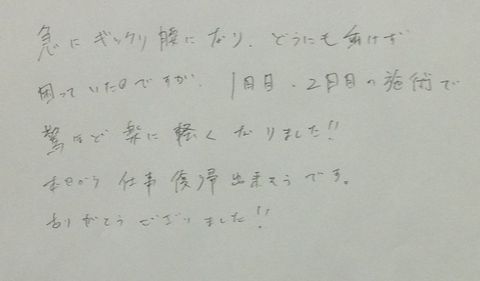 急にギックリ腰になり、どうにも動けず
困っていたのですが、1日目、2日目の施術で
驚くほど楽に軽くなりました!!
本日から仕事復帰出来そうです。
ありがとうございました!!